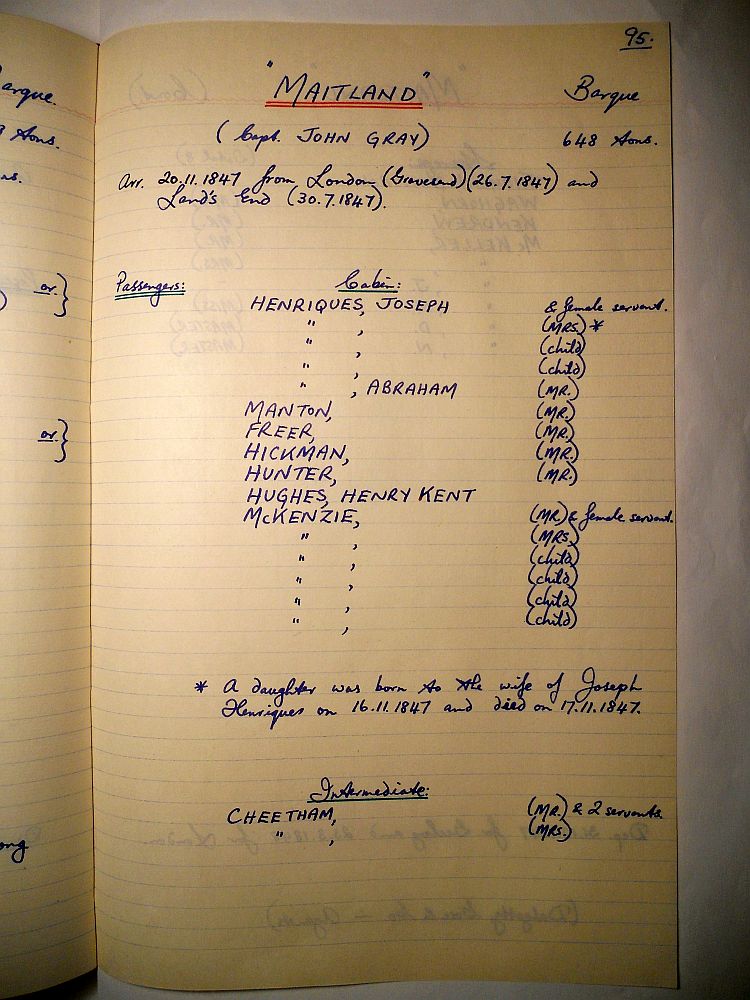 95.
"MAITLAND" Barque
(Capt. JOHN GRAY) 648 tons.
Arr. 20.11.1847 from London (Gravesend)(26.7.1847) and
Land's End (30.7.1847).
Passengers: Cabin:
HENRIQUES, JOSEPH & female servant.
" , (MRS.)*
" , (child)
" , (child)
" , ABRAHAM (MR.)
MANTON, (MR.)
FREER, (MR.)
HICKMAN, (MR.)
HUNTER, (MR.)
HUGHES, HENRY KENT
McKENZIE, (MR.) & female servant.
" , (MRS.)
" , (child)
" , (child)
" , (child)
" , (child)
* A daughter was born to the wife of Joseph
Henriques on 16.11.1847 and died on 17.11.1847.
Intermediate:
CHEETHAM, (MR.) & 2 servants.
" , (MRS.)
arque.
tons.
or }
or }